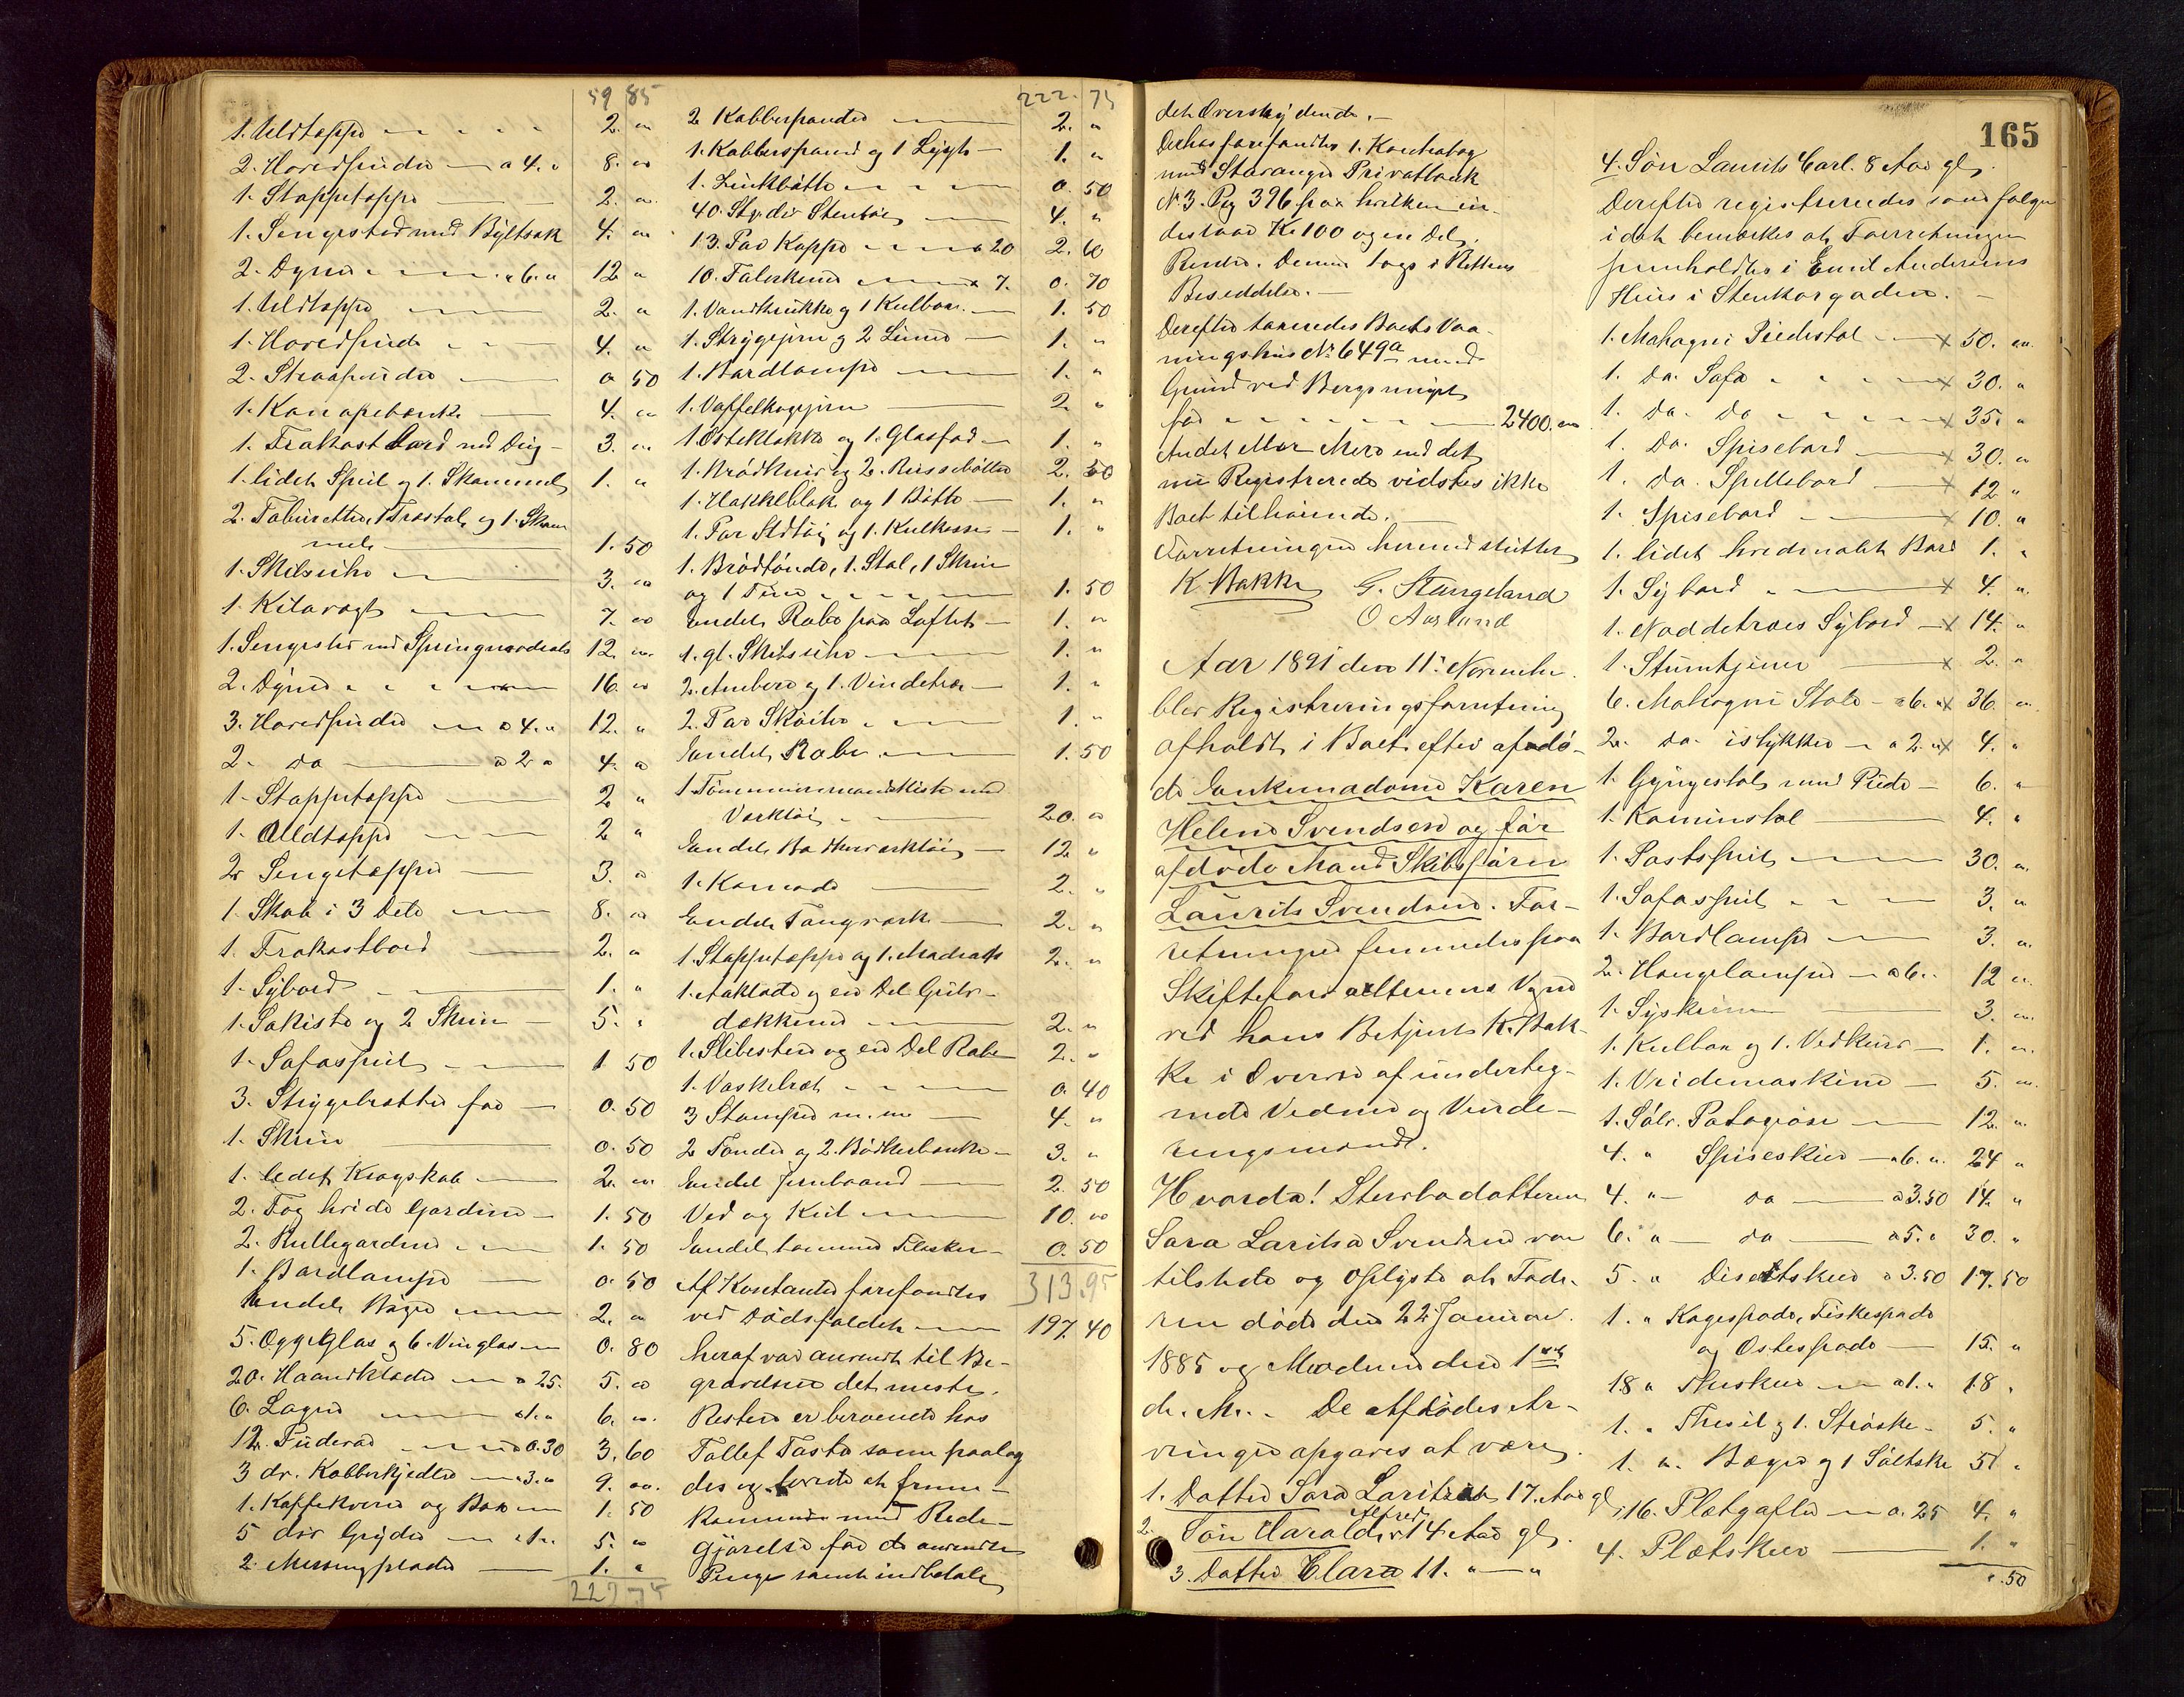 59 85
1. Uldtæppe 2. "
2. Hovedpuder a 4. " 8. "
1. Stoppetæppe 2. "
1. Sengested med Byltsæk 4. "
2. Dyner a 6. " 12 "
1. Uldtæppe 2. "
1. Hovedpude 4. "
2. Straapuder 0 50
1. Kanapebænk 4. "
1. Frokostbord med Dug 3. "
1. lidet Speil og 1. Skammel 1. "
2. Taburetter, 1 Træstol og 1. Skam
mel 1. 50
1. Skibsuhr 3. "
1. Kikert 7. "
1. Sengested med Springmadrats 12. "
2. Dyner 16. "
3. Hovedpuder a 4. " 12. "
2. do a 2 " 4. "
1. Stoppetæppe 2 "
1. Uldtæppe 2 "
2 Sengetæpper 3. "
1. Skab i 3 Dele 8. "
1. Frokostbord 2. "
1. Sybord 1. "
1. Søkiste og 2 Skrin 5. "
1. Sofaspeil 1. 50
3. Strygebrætter for 0. 50
1. Skrin 0. 50
1. lidet Krogskab 2. "
2. Fag hvide Gardiner 1. 50
2. Rullegardiner 1. 50
1. Bordlampe 0. 50
Endel Bøger 2. "
5. Oggeglas og 6. Vinglas 0. 80
20. Haandklæder a 25. 5. "
6. Lagner a 1. " 6. "
12. Pudevar a 0. 30 3. 60
3 dv. Kobberkjedler a 3. " 9. "
1. Kaffekværn og Box 1. 50
5 dv. Gryder a 1. " 5. "
2. Messingplader 1. "
222 75
222. 75
2 Kobberpander 2. "
1. Kobberspand og 1 Lygte 1. "
1. Zinkbøtte 0. 50
40. Stkr div Stentøi 4. "
13. Par Kopper a 20 2. 60
10. Talerkener a 7. 0. 70
1. Vandkrukke og 1 Kulbox 1. 50
1. Strygejern og 2 Liner 1. "
1. Bordlampe 1. "
1. Vaffelkagejern 2. "
1 Osteklokke og 1. Glasfad 1. "
1. Brødkurv og 2. Rissebøtter 2. 50
1. Hakkeblok og 1 Bøtte 1. "
1. Par Ildtøi og 1. Kulkasse 1. "
1. Brødtønde, 1. Stol, 1 Skrin
og 1 Tine 1. 50
Endel Rabe paa Loftet 1. "
1. gl. Skibsuhr 1. "
2. Ambere og 1. Vindetræ 1. "
2. Par Skøiter 1. "
Endel Rabe 1. 50
1 Tømmermandskiste med
Værktøi 20. "
Endel Bødkerværktøi 12 "
1. Komode 2. "
Endel Tougværk 2. "
1. Stoppetæppe og 1. Madrads 2. "
1. Aaklæde og en Del Gulv-
dækkener 2. "
1. Slibesten og en Del Rabe 2. "
1. Vaskebræt 0. 40
3 Stamper m. m 4. "
2 Tønder og 2. Bødkerbænke 3. "
Endel Jernbaand 2. 50
Ved og Kul 10. "
Endel tomme Flasker 0. 50
313.95
Af Kontanter forefandtes
ved Dødsfaldet 197. 40
heraf var anvendt til Be-
gravelsen det meste.
Resten er beroende hos
Tollef Tasta som paalag
des og lovede at frem-
komme med Rede-
gjørelse for de anvendte
Penge samt indbetale
det Overskydende.
Derhos forefandtes 1. Kontrabog
med Stavanger Privatbank
N. 3. Pag 396 paa hvilken in-
destaar Kr 100 og en Del
Renter. Denne togs i Rettens
Besiddelse.
Derefter taxeredes Boets Vaa-
ningshus No 649a med
Grund ved Bergsmugt
for 2400. "
Andet eller Mere end det
nu Registrerede vidstes ikke
Boet tilhørende.
Forretningen hermed sluttet
K. Bakke G. Stangeland
O Aarland
Aar 1891 den 11. November
blev Registreringsforretning
afholdt i Boet efter afdø-
de Enkemadame Karen
Helene Svendsen og før
afdøde Mand Skibsfører
Laurits Svendsen. For-
retningen fremmedes paa
Skifteforvalterens Vegne
ved hans Betjent K. Bak-
ke i Overvær af underteg-
nede Vidner og Vurde-
ringsmænd.
Hvorda! Sterbodatteren
Sara Laritza Svendsen var
tilstede og oplyste at Fade-
ren døde den 22 Januar
1885 og Moderen den 1ste
d. M. De Afdødes Ar-
vinger opgaves at være
1. Datter Sara Laritza 17. Aar gl
2. Søn Harald Alfred 14 Aar gl.
3. Datter Clara 11. " "
165
4. Søn Laurits Carl. 8 Aar gl.
Derefter registreredes som følger
idet bemærkes at Forretningen
fremholdtes i Emil Andersens
Hus i Stenkargaden.
1. Mahogni Piedestal x 50. "
1. do. Sofa x 30. "
1. do. do x 35. "
1. do. Spisebord x 30. "
1. do. Spillebord x 12 "
1. Spisebord x 10. "
1. lidet hvidmalet Bord 1. "
1. Sybord x 4. "
1. Nøddetræes Sybord x 14. "
1. Stumtjener x 2. "
6. Mahogni Stole a 6. " x 36. "
2. do. istykker a 2. " x 4. "
1. Gyngestol med Pude 6. "
1. Kaminstol 4. "
1. Postspeil 30. "
1. Sofaspeil 3. "
1. Bordlampe 3. "
2. Hængelamper a 6. " 12 "
1. Syskrin 3. "
1. Kulbox og 1. Vedkurv 1. "
1. Vridemaskine 5. "
1. Sølv. Potageøse 12. "
4. " Spiseskeer a 6. " 24 "
4. " do a 3.50 14. "
6. " do a 5. " 30. "
5. " Disertskeer a 3.50 17. 50
1. " Kagespade, Fiskespade
og Ostespade 15. "
18 " Theskeer a 1. " 18 "
1. " Thesil og 1. Strøske 5. "
1. " Bæger og 1 Saltske 5. "
16. Pletgafler a. 25 4. "
4. Pletskeer 1. "
. 50